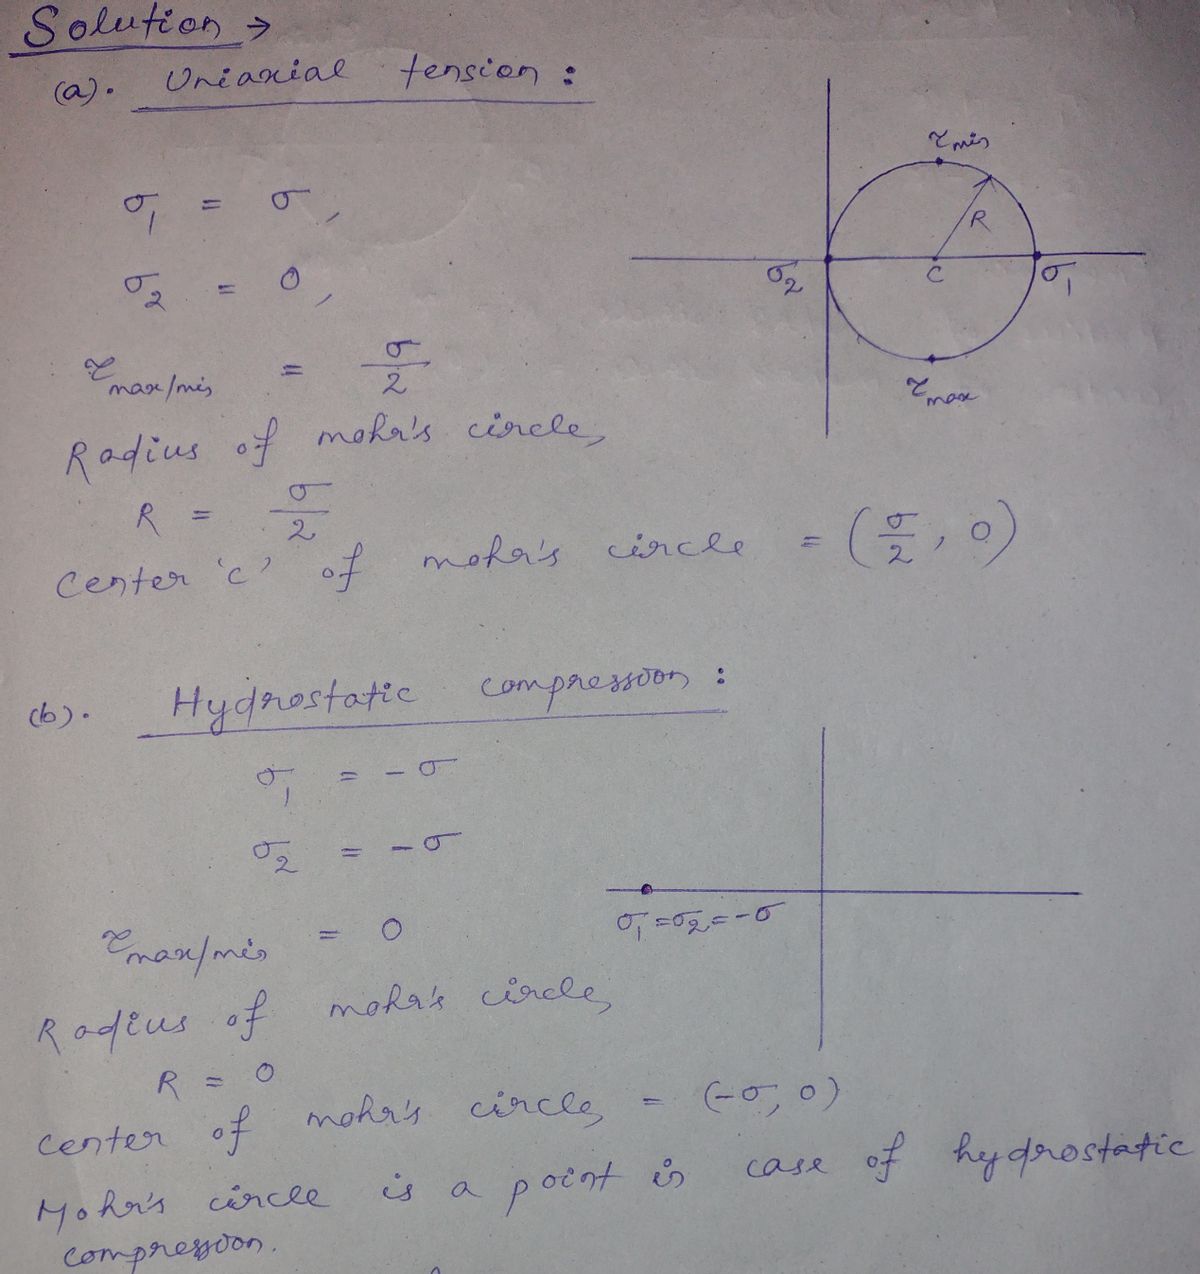 Solution →
(a). Uniaxial tension :
σ₁ = σ,
σ₂ = 0,
τmax/min = σ/2
Radius of mohr's circle,
R = σ/2
Center 'C' of mohr's circle = (σ/2, 0)
τmin
R
σ₂
C
σ₁
τmax
(b). Hydrostatic compression :
σ₁ = -σ
σ₂ = -σ
σ₁=σ₂=-σ
τmax/min = 0
Radius of mohr's circle,
R = 0
Center of mohr's circle, = (-σ, 0)
Mohr's circle is a point in case of hydrostatic
compression.